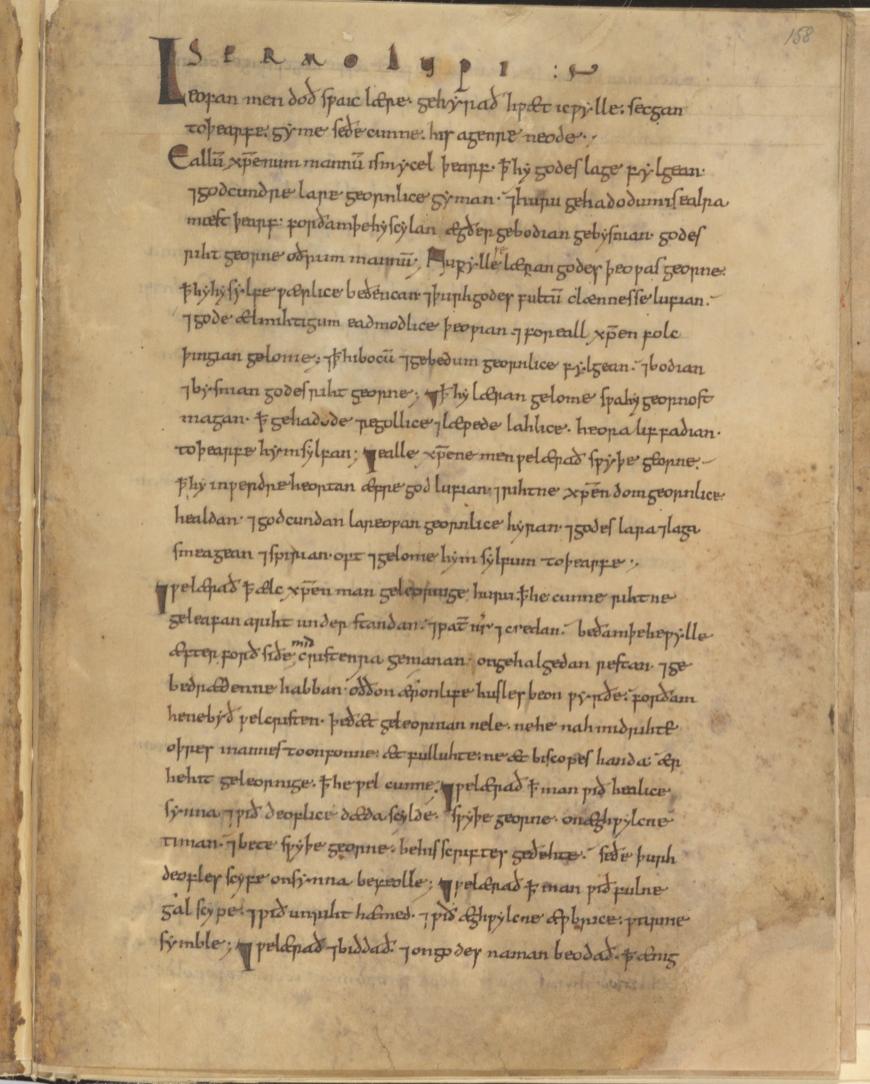 158
SERMO LUPI :~
Leofan men doð sƿa ic lære· gehyrað hƿæt ic ƿylle· secgan
to þearfe; gyme seðe cunne· his agenre neode·,
Eallū xp̄enum mannū is mycel þearf· ꝥ hy godes lage fylgean·
⁊ godcundre lare geornlice gyman· ⁊ huru gehadodum is ealra
mæst þearf· forðam þe hy scylan ægðer ge bodian ge bysnian· godes
riht georne oðrum mannū; Nu ƿylle ƿe læran godes þeoƿas georne·
ꝥ hy hy sylfe ƿærlice beðencan· ⁊ þurh godes fultū clænnesse lufian·
⁊ gode ælmihtigum eadmodlice þeoƿian· ⁊ for eall xp̄en folc
þingian gelome; ⁊ ꝥ hi bocū ⁊ gebedum geornlice fylgean· ⁊ bodian
⁊ bysnian godes riht georne; ⁊ ꝥ hy læran gelome sƿa hy geornost
magan· ꝥ gehadode regollice ⁊ læƿede lahlice· heora lif fadian·
to þearfe hym sylfan; ⁊ ealle xp̄ene men ƿe lærað sƿyþe georne·
ꝥ hy inƿerdre heortan æfre god lufian· ⁊ rihtne xp̄endom geornlice·
healdan· ⁊ godcundan lareoƿan geornlice hyran· ⁊ godes lara ⁊ laga
smeagean ⁊ spirian· oft ⁊ gelome hym sylfum to þearfe·,
⁊ ƿe lærað ꝥ ælc xp̄en man geleornige huru· ꝥ he cunne rihtne
geleafan ariht under standan· ⁊ pat̄ nr̄ ⁊ credan· beðam þe he ƿylle
æfter forðsiðe mid cristenra gemanan· on gehalgedan restan· ⁊ ge
bedrædenne habban· oððon ær on life husles beon ƿyrðe· forðam
he ne byð ƿel cristen· þe ðæt geleornian nele· ne he nah mid rihte
oþres mannes to onfonne· æt fulluhte· ne æt biscopes handa· ær
he hit geleornige· ꝥ he ƿel cunne; ⁊ ƿe lærað ꝥ man ƿið healice
synna ⁊ ƿið deoflice dæda scylde· sƿyþe georne· on æghƿylcne
timan· ⁊ bete sƿyþe georne· be his scriftes geðehte· seðe þurh
deofles scyfe on synna befeolle; ⁊ ƿe lærað ꝥ man ƿið fulne
galscype· ⁊ ƿið unriht hæmed· ⁊ ƿið æghƿylcne æƿbrice· ƿarnie
symble; ⁊ ƿe lærað ⁊ biddað· ⁊ on godes naman beodað· ꝥ ænig